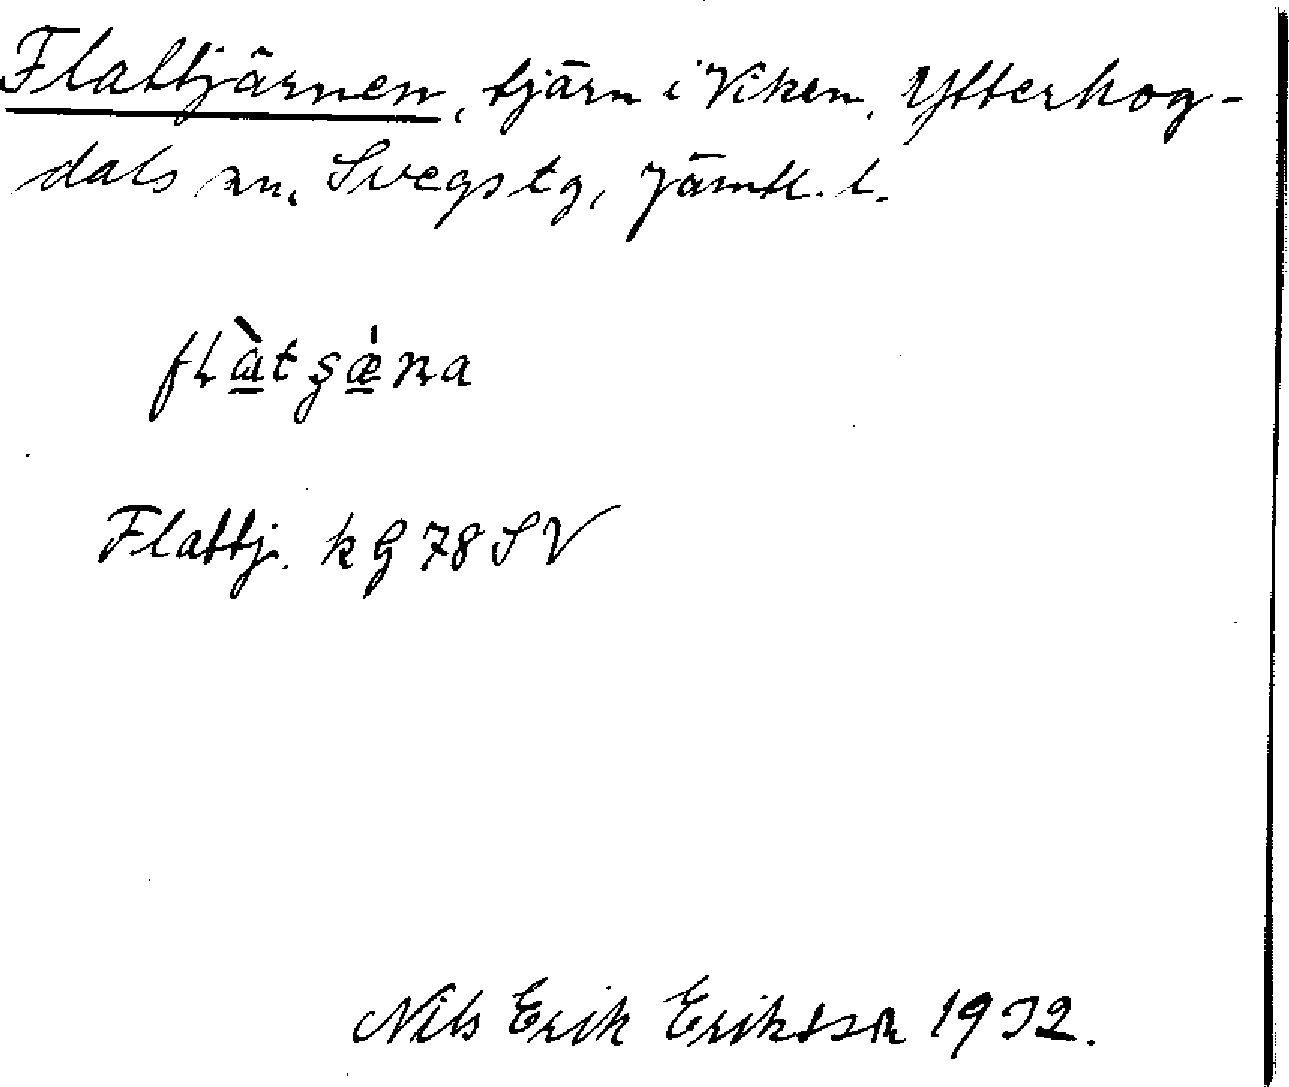 Flattjärnen, tjärn i Viken, Ytterhog-
dals sn. Svegs tg, Jämtl. l.
Flattj. k G 78 SV
Nils Erik Eriksson 1932.